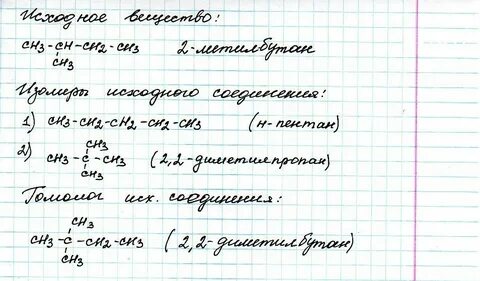 Исходное вещество:
CH3-CH-CH2-CH3 2-метилбутан
CH3
Изомеры исходного соединения:
1) CH3-CH2-CH2-CH2-CH3 (н-пентан)
CH3
2) CH3-C-CH3 (2,2-диметилпропан)
CH3
Гомолог исх. соединения:
CH3
CH3-C-CH2-CH3 (2,2-диметилбутан)
CH3